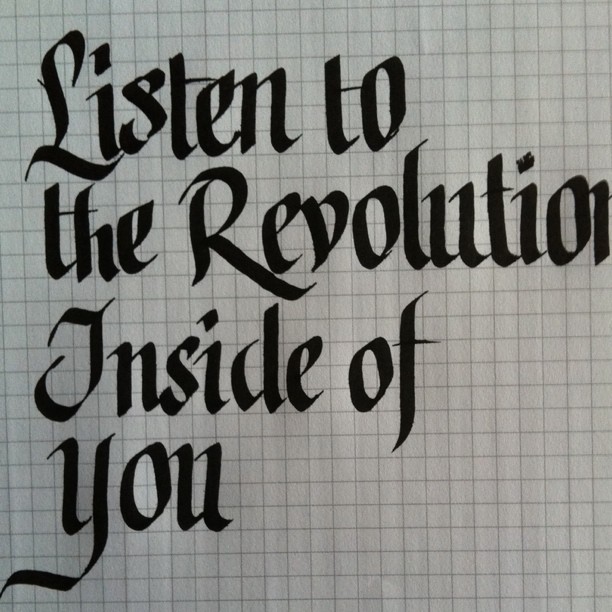 Listen to
the Revolution
Inside of
you